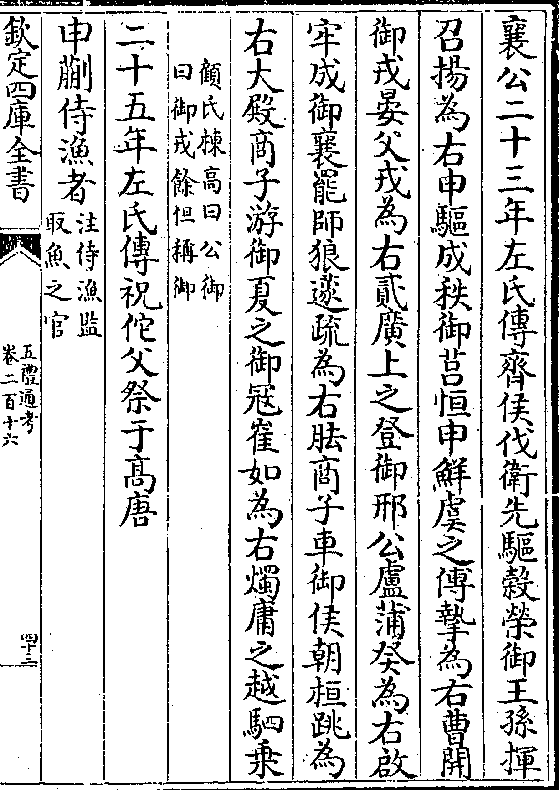 襄公二十三年左氏傳齊侯伐衛先驅穀榮御王孫揮
召揚為右申驅成秩御莒恒申鮮虞之傅摯為右曹開
御戎晏父戎為右貳廣上之登御邢公盧蒲癸為右啟
牢成御襄罷師狼蘧疏為右胠商子車御侯朝桓跳為
右大殿商子游御夏之御冦崔如為右燭庸之越駟乗
顧氏棟高曰公御
曰御戎餘但稱御
二十五年左氏傳祝佗父祭于髙唐
申蒯侍漁者
注侍漁監
取魚之官
欽定四庫全書
五禮通考
卷二百十六
四十三